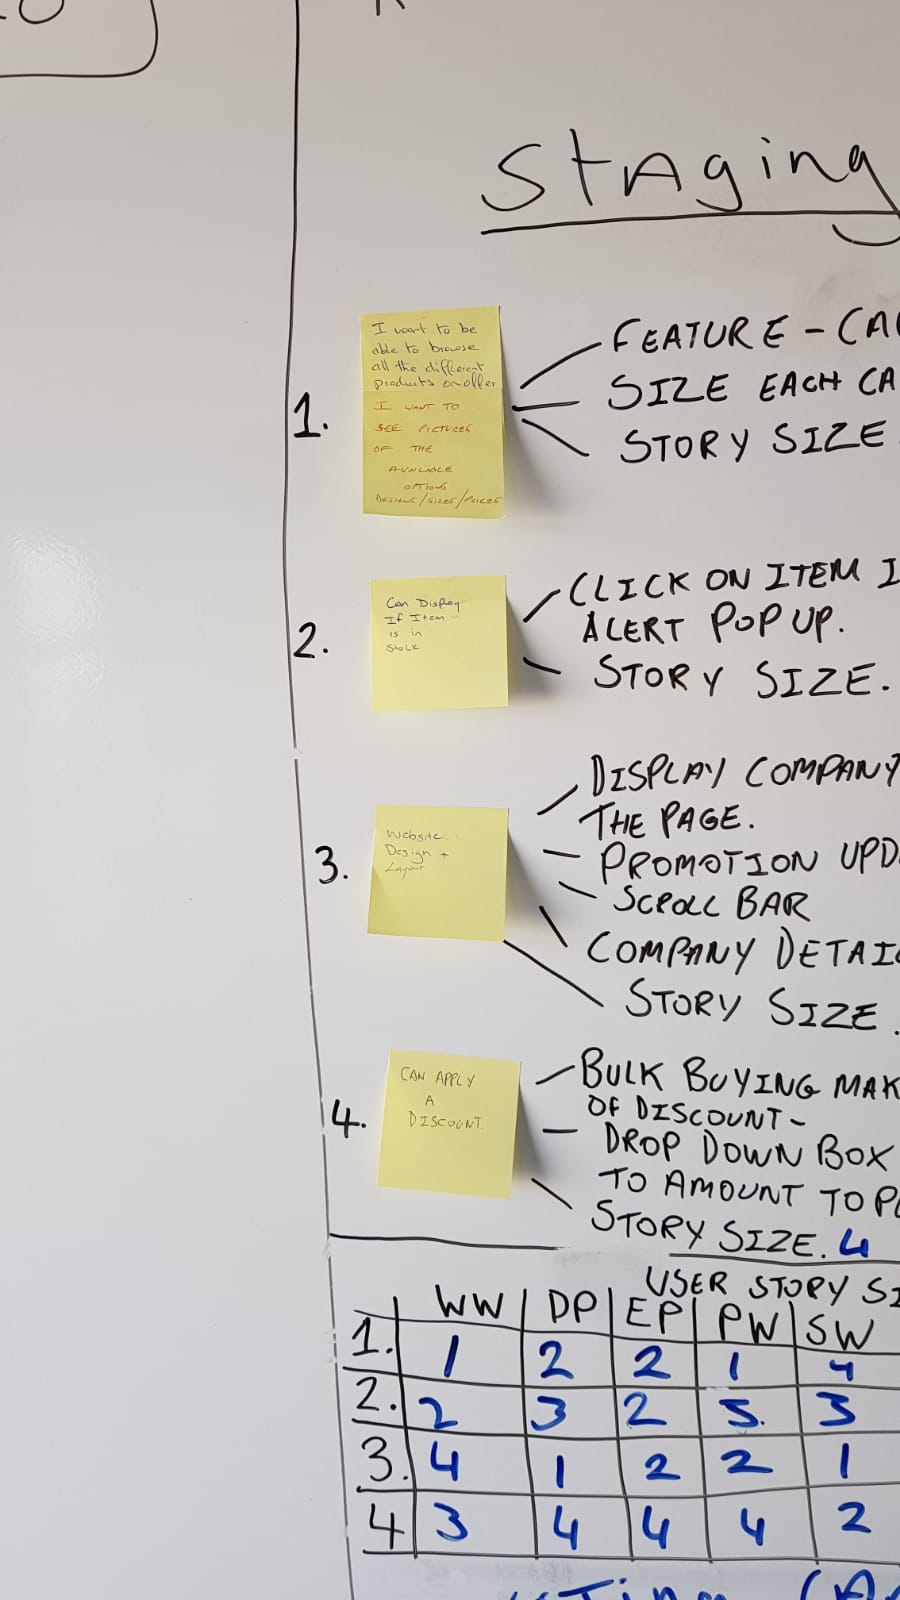 Staging
1.
I want to be
able to browse
all the different
products on offer
I WANT TO
SEE PICTURES
OF THE
AVAILABLE
OPTIONS
DESIGNS/SIZES/PRICES
FEATURE - CA
SIZE EACH CA
STORY SIZE
2.
Can Display
If Item
is in
Stock
CLICK ON ITEM I
ALERT POP UP.
STORY SIZE.
3.
Website
Design +
Layout
DISPLAY COMPANY
THE PAGE.
PROMOTION UPD
SCROLL BAR
COMPANY DETAI
STORY SIZE.
4.
CAN APPLY
A
DISCOUNT.
BULK BUYING MAK
OF DISCOUNT-
DROP DOWN BOX
TO AMOUNT TO P
STORY SIZE. 4
USER STORY SI
WW DP EP PW SW
1. 1 2 2 1 4
2. 2 3 2 3. 3
3. 4 1 2 2 1
4 3 4 4 4 2